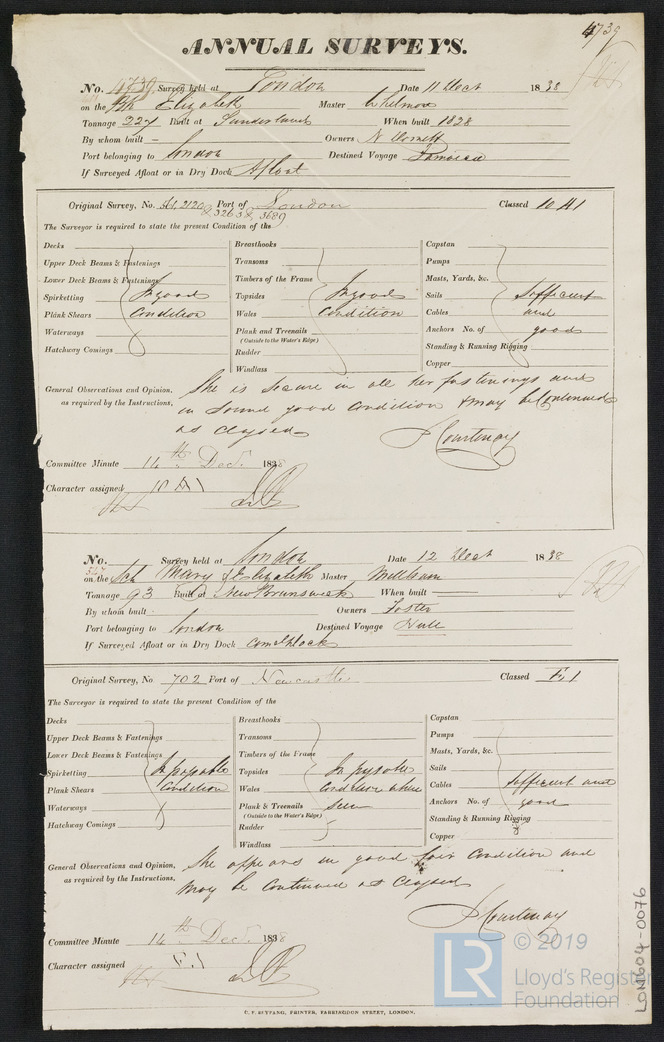 4739
ANNUAL SURVEYS.
No. 4739 Survey held at London Date 11 Dect 1838
on the Elizabeth Master Whitmore
Tonnage 227 Built at Sunderland When built 1828
By whom built - Owners N
Port belonging to London Destined Voyage Jamaica
If Surveyed Afloat or in Dry Dock Afloat
Original Survey, No. 2120 Port of London Classed 10 A1
& 3263 & 3689
The Surveyor is required to state the present Condition of the
Decks Breasthooks Capstan
Upper Deck Beams & Fastenings Transoms Pumps
Lower Deck Beams & Fastenings Timbers of the Frame Masts, Yards, &c.
Spirketting In good Topsides In good Sails Sufficient
Plank Shears Condition Wales Condition Cables and
Waterways Plank and Treenails Anchors No. of good
(Outside to the Water's Edge)
Hatchway Comings Rudder Standing & Running Rigging
Windlass Copper
General Observations and Opinion, She is secure in all her fastenings and
as required by the Instructions, in sound good Condition & may be Continued
as Classed
J Courtenay
Committee Minute 14th Decr. 1838
Character assigned 10 A1
No. 527 Survey held at London Date 12 Dect 1838
on the Sch Mary & Elizabeth Master Millburn
Tonnage 93 Built at New Brunswick When built
By whom built Owners Foster
Port belonging to London Destined Voyage Hull
If Surveyed Afloat or in Dry Dock
Original Survey, No 702 Port of Newcastle Classed E.1
The Surveyor is required to state the present Condition of the
Decks Breasthooks Capstan
Upper Deck Beams & Fastenings Transoms Pumps
Lower Deck Beams & Fastenings Timbers of the Frame Masts, Yards, &c.
Spirketting In Topsides In Sails
Plank Shears Condition Wales Condition where Cables Sufficient and
Waterways Plank & Treenails seen Anchors No. of good
(Outside to the Water's Edge)
Hatchway Comings Rudder Standing & Running Rigging
Windlass Copper
General Observations and Opinion, She appears in good fair Condition and
as required by the Instructions, may be Continued as Classed
J Courtenay
Committee Minute 14th Decr. 1838
Character assigned E.1
LR © 2019
Lloyd's Register
Foundation
LON604-0076
C. F. SEYFANG, PRINTER, FARRINGDON STREET, LONDON.